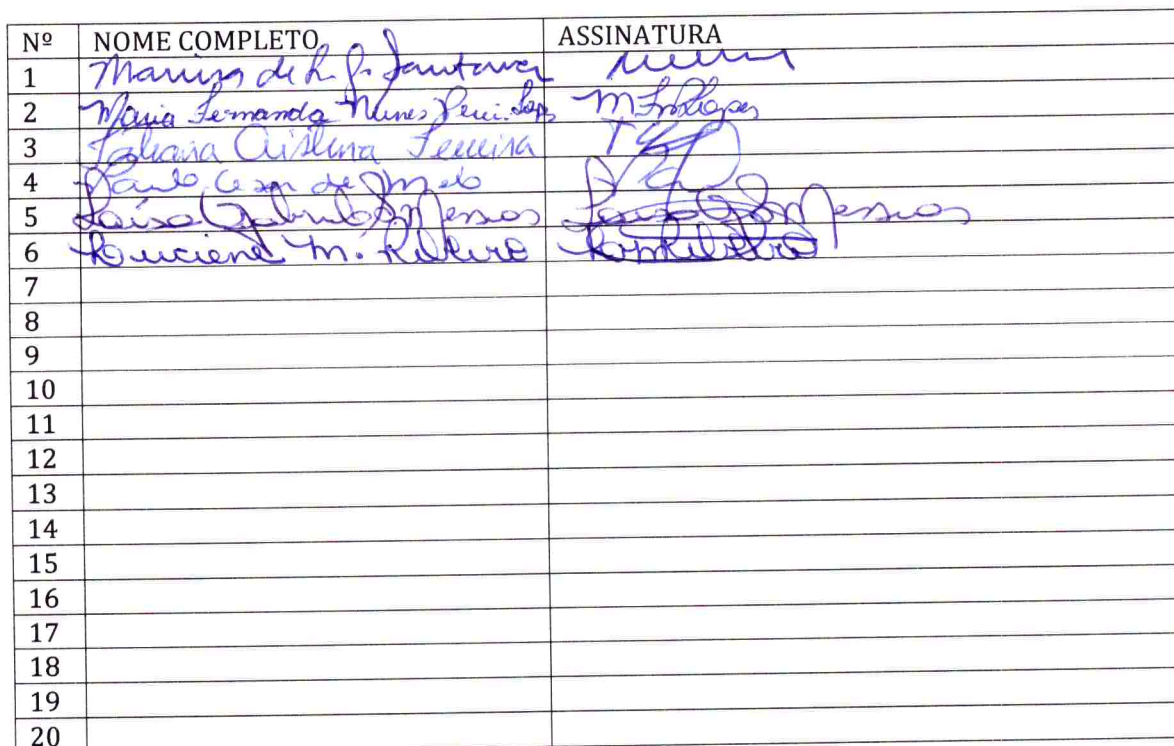 Nº NOME COMPLETO ASSINATURA
1 Marina de L. G. Santana
2 Maria Fernanda Nunes Lopes M F Lopes
3 Cristina Ferreira
4 Paulo Cesar de Melo
5 Laísa Gabriela S Messias Laísa G S Messias
6 Luciene M. Ribeiro LMRibeiro
7
8
9
10
11
12
13
14
15
16
17
18
19
20